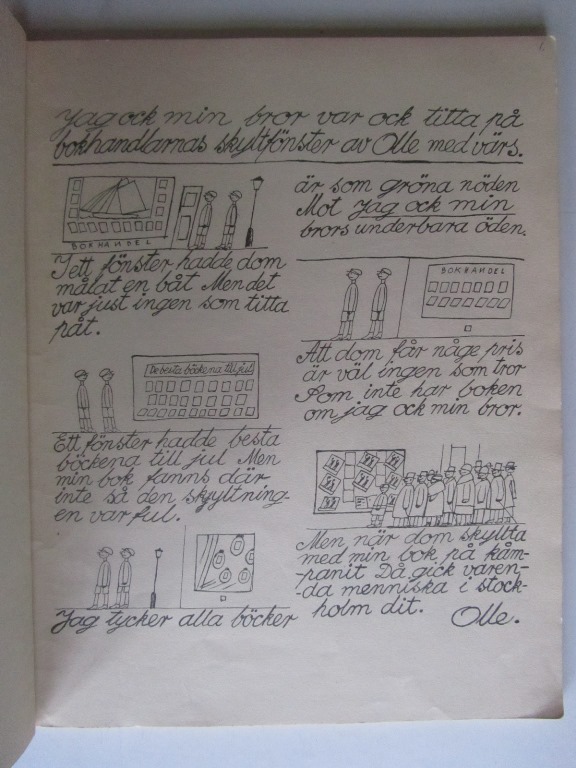 Jag ock min bror var ock titta på
bokhandlarnas skyltfönster av Olle med värs.
BOKHANDEL
I ett fönster hadde dom
målat en båt Men det
var just ingen som titta
påt.
De besta böckena till jul
Ett fönster hadde besta
böckena till jul Men
min bok fanns där
inte så den skyyltning-
en var ful.
Jag tycker alla böcker
är som gröna nöden
Mot Jag ock min
brors underbara öden.
BOKHANDEL
Att dom får någe pris
är väl ingen som tror
Som inte har boken
om jag ock min bror.
Men när dom skyllta
med min bok på kåm-
-panit Då gick varen-
-da menniska i stock-
-holm dit.
Olle.